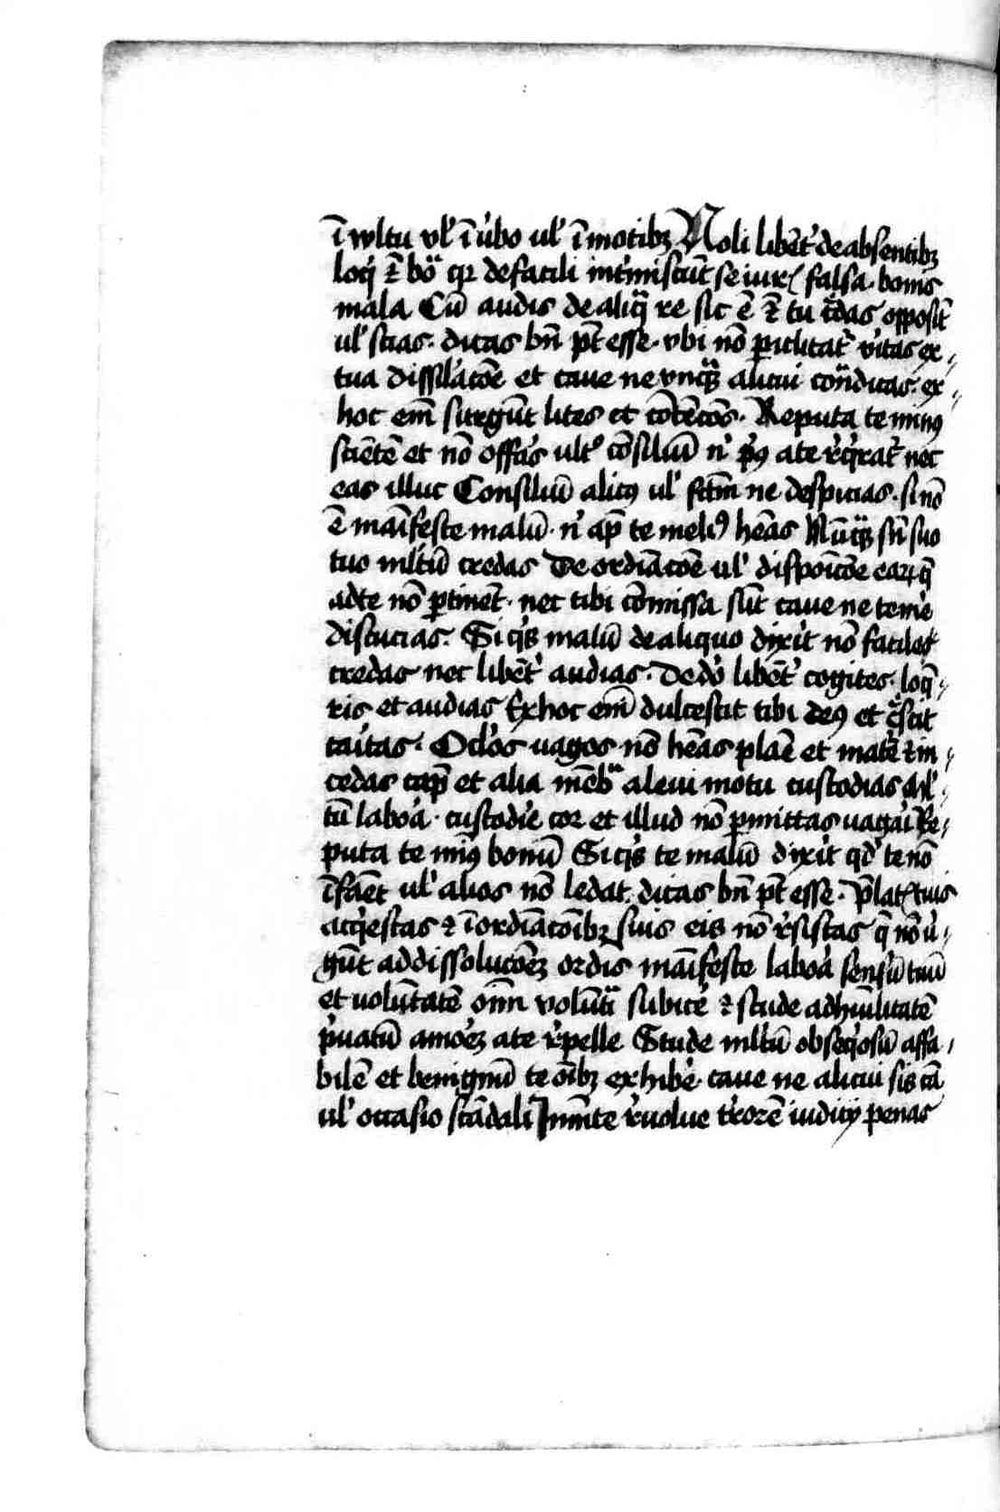 ī vvltu vl' ī v̾bo ul' ī motibꝫ Noli libēt̾ de absentibꝫ
loq̄ ī bōͣ qꝛ defacili int̾misc̄ut se iurͥ falsa · bonis
mala Cū audis de aliqͣ re sic ē ⁊ tu c̄das opposit̄
ul' scias · dicas bn̄ pt̄ esse · vbi nō ꝑiclitat̾ v̾itas ex
tua dissil̾acōe et caue ne vnqͣꝫ alicui cōͣdicas · ex
hoc em̄ surgūt lites et cōtēcōs · Reputa te minꝰ
sciētē et nō offās ult̾ cōsiliū nͥ pͥꝰ a te r̾qͥrat̾ nec
eas illuc Consiliū alicꝰ ul' fc̄m ne despicias · si nō
ē māifeste malū · nͥ ap̄ te meliꝰ hēas Nūqͣꝫ sn̄sui
tuo ml̾tū credas De ordiācōe ul' dispoīcōe eaꝝ q̄
ad te nō ꝑtinēt · nec tibi cōmissa sūt caue ne tem̾e
discucias · Si qͥs malū de aliquo dixit nō facilit̾
credas nec libēt̾ audias · De do̾ libēt̾ cogites · loq̄
ris et audias Ex hoc em̄ dulcescit tibi deꝰ et c̾scit
caitas · Oc̄los uagos nō hēas plāe et mat̾e ⁊ in
cedas cap̄ et alia mēbͣ a leui motu custodias
tū laboā · custodīe cor et illud nō ꝑmittas uagāi Re
puta te minꝰ bonū Si qͥs te malū dixit qd' te nō
īfāet ul' alios nō ledat · dicas bn̄ pt̄ esse · p̄lat̾ tuis
acq̄escas ⁊ ī ordiācōibꝫ suis eis nō r̾sistas q̄ nō v̾
gūt ad dissolucōeꝫ ordīs māifeste laboā sensū tuū
et uolūtatē oīm volūtͥ subice̾ ⁊ stude ad hūilitatē
pͥuatū amo̾eꝫ a te r̾pelle Stude ml̾tū obseqͥosū affa
bilē et benignū te oībꝫ exhibe̾ · caue ne alicui sis cā
ul' occasio scādali In mēte r̾uolue t̾rorē iudicij penas